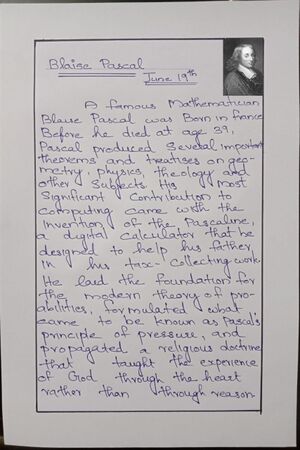 Blaise Pascal
June 19th
A famous Mathematician
Blaise Pascal was Born in france
Before he died at age 39,
Pascal produced Several important
theorems and treatises on geo-
metry, physics, theology and
other Subjects. His most
Significant Contribution to
Computing came with the
Invention of the Pascaline,
a digital Calculator that he
designed to help his father
in his tax-collecting work.
He laid the foundation for
the modern theory of pro-
abilities, formulated what
came to be known as Pascal's
principle of pressure, and
propagated a religious doctrine
that taught the experience
of God through the heart
rather than through reason